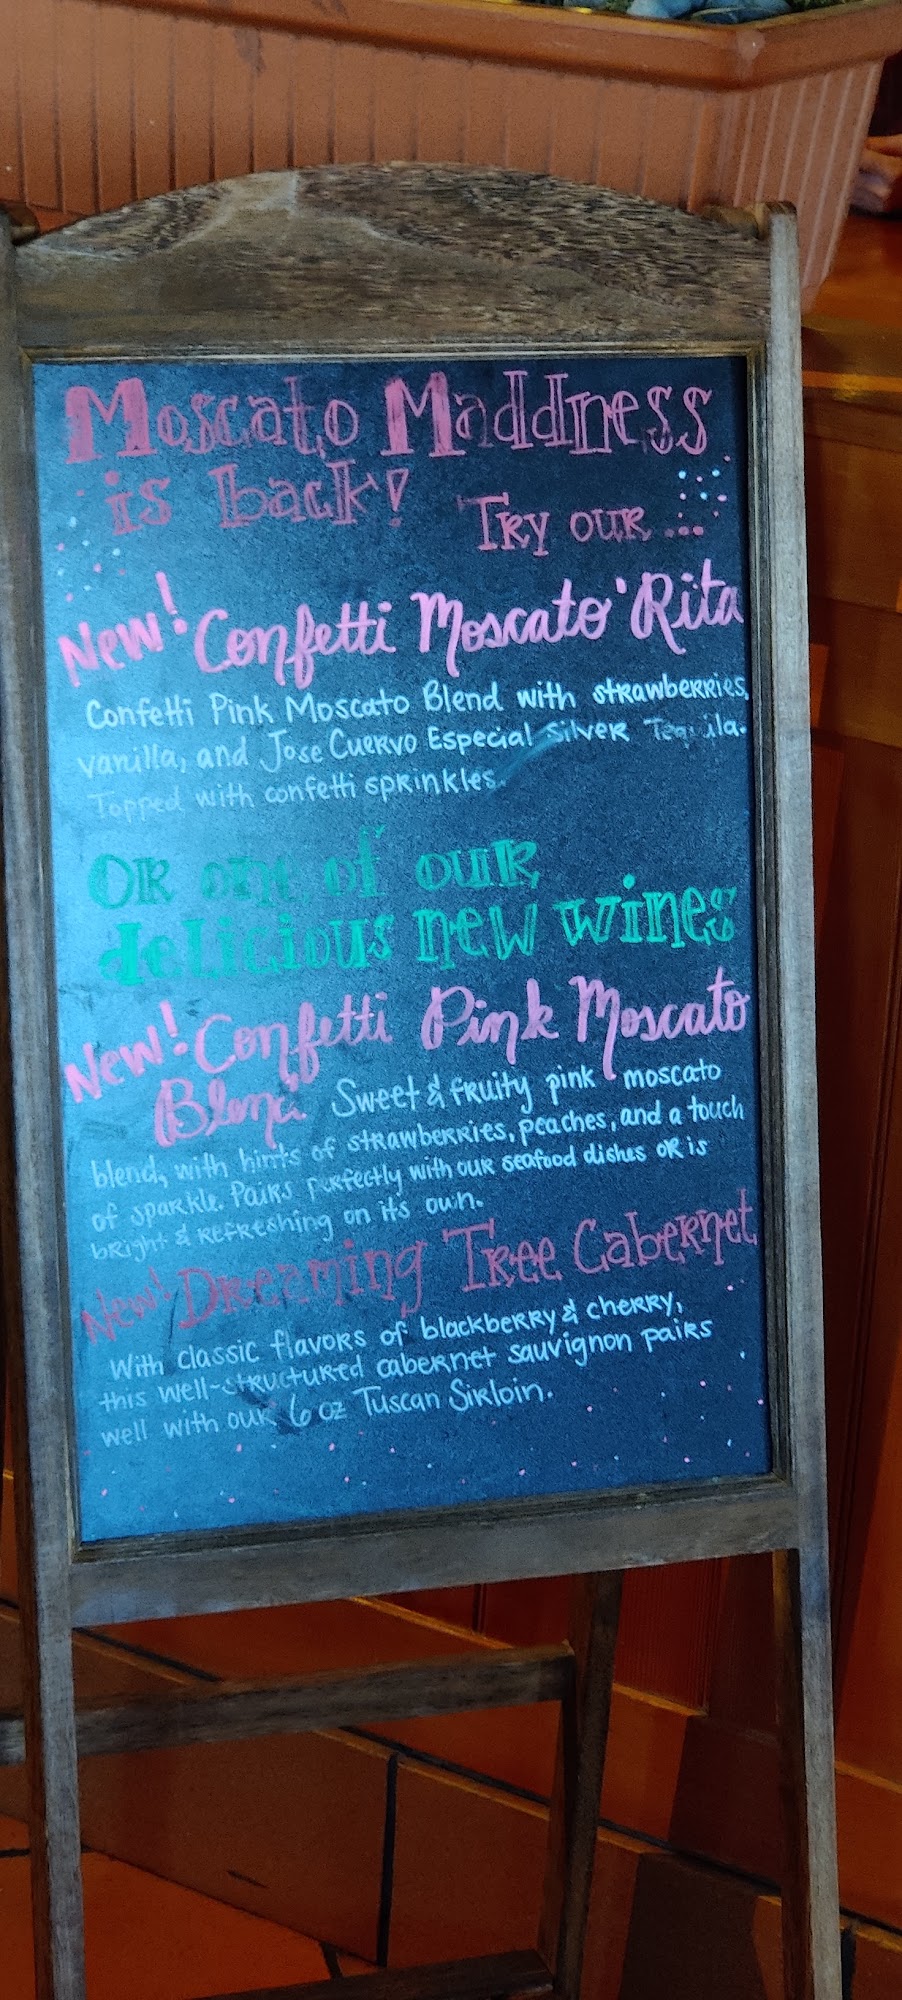 Moscato Maddness
is back!
Try our ...
New! Confetti Moscato 'Rita
Confetti Pink Moscato Blend with strawberries,
vanilla, and Jose Cuervo Especial Silver Tequila.
Topped with confetti sprinkles.
Or one of our
delicious new wines
New! Confetti Pink Moscato
Blend Sweet & fruity pink moscato
blend, with hints of strawberries, peaches, and a touch
of sparkle. Pairs perfectly with our seafood dishes or is
bright & refreshing on its own.
New! Dreaming Tree Cabernet
With classic flavors of blackberry & cherry,
this well-structured cabernet sauvignon pairs
well with our 6 oz Tuscan Sirloin.